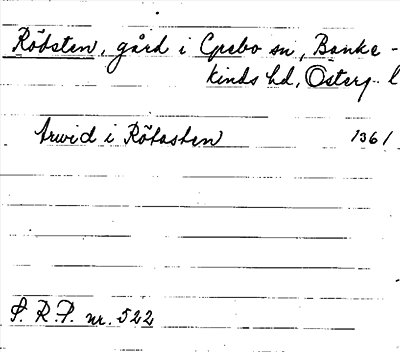 Rödsten, gård i Grebo sn, Banke-
kinds hd, Österg. l
Arvid i Rödasten 1361
S. R. P. nr. 522